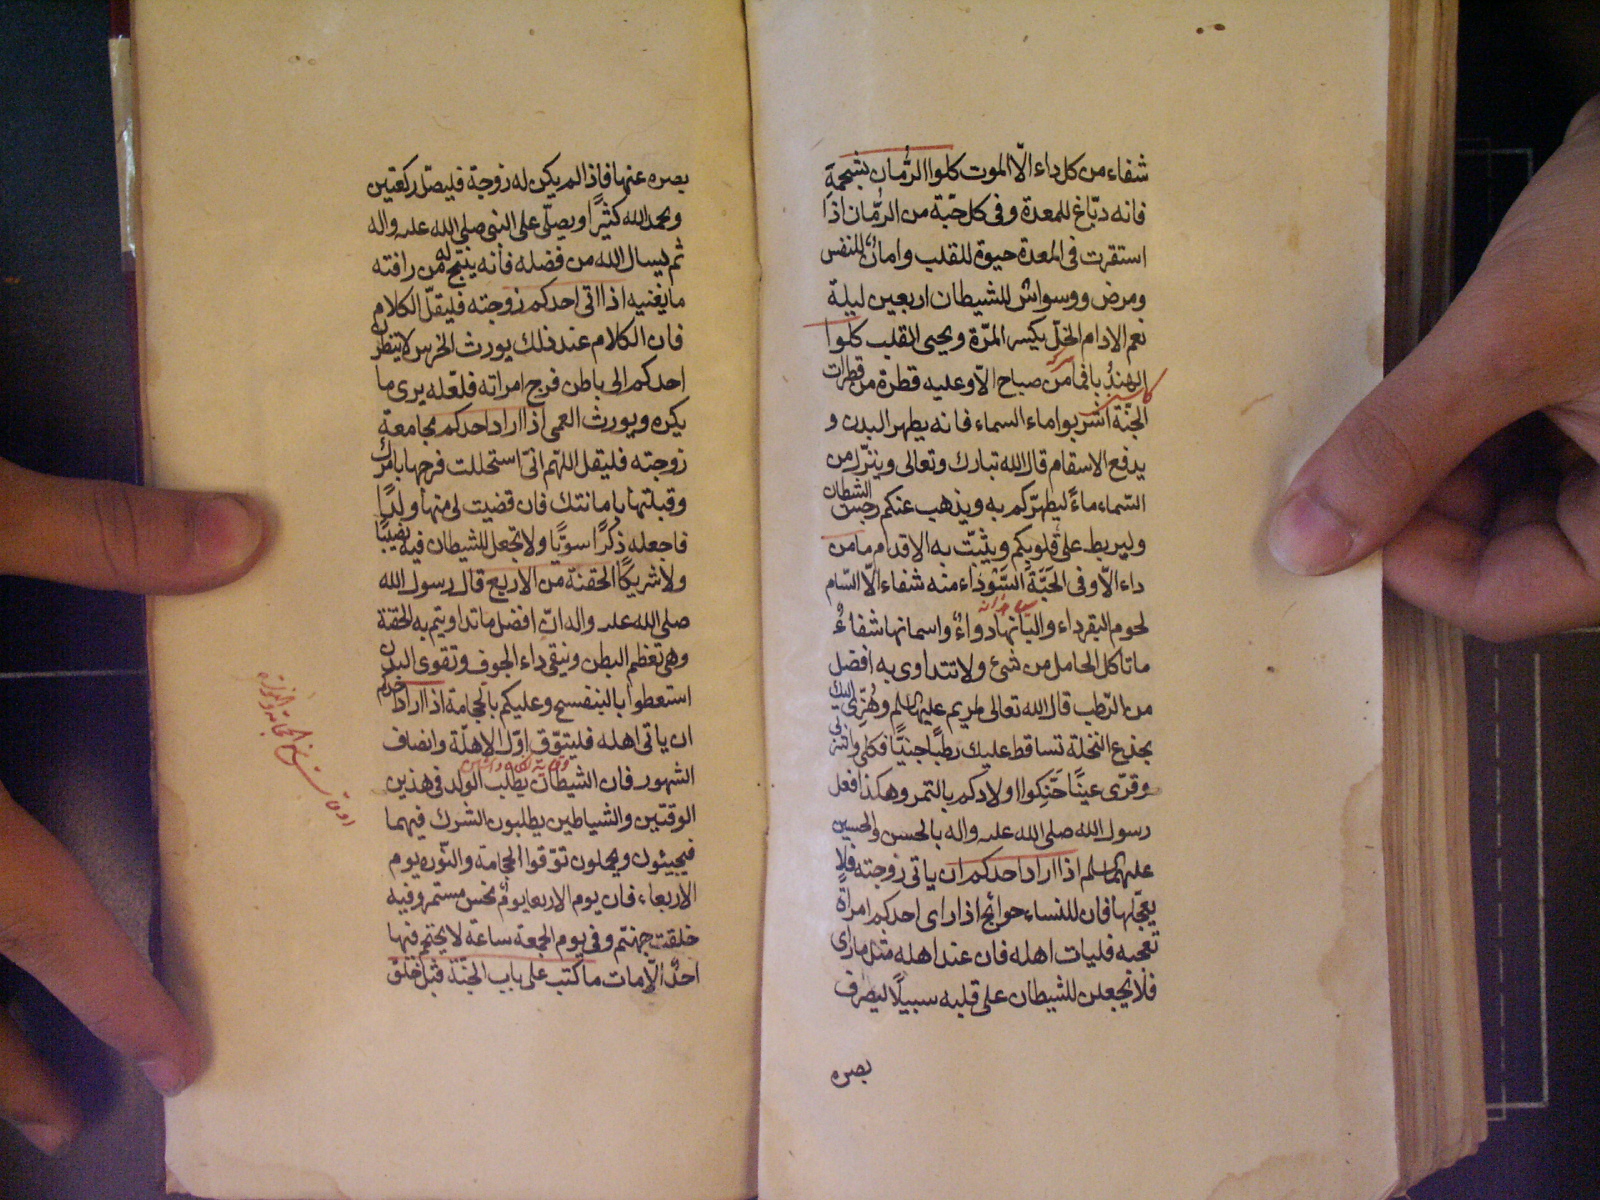 شفاء من كل داء الّا الموت كلوا الرُّمان بشحمةِ
فانه دبّاغ للمعدة وفى كل حبّة من الرُّمان اذا
استقرت فى المعدة حيوة للقلب وامانٌ للنفس
ومرض ووسواس للشيطان اربعين ليلة
نعم الادام الخلّ يكسر المرّة ويحيى القلب كلوا
الهندبا فما من صباح الّا وعليه قطرة من قطرات
الجنّة اشربوا ماء السماء فانه يطهر البدن و
يدفع الاسقام قال الله تبارك وتعالى وينزّل من
السّماء ماءً ليطهّركم به ويذهب عنكم رجس الشيطان
وليربط على قلوبكم ويثبّت به الاقدام ما من
داء الّا وفى الحَبّة السَّوْدَاء منه شفاء الّا السّام
لحوم البقر داء والبانها دواءٌ واسمانها شفاءٌ
ما تاكل الحامل من شئ ولا تتداوى به افضل
من الرّطب قال الله تعالى لمريم عليها السلم وهُزّى اليك
بجذع النخلة تساقط عليك رطبًا جنيًّا فكلى واشربى
وقرّى عينًا حَنِّكوا اولادكم بالتمر وهكذا فعل
رسول الله صلى الله عليه واله بالحسن والحسين
عليهما السلم اذا اراد احدكم ان ياتى زوجته فلا
يعجّلها فان للنساء حوائج اذا راى احدكم امراة
تعجبه فليات اهله فان عند اهله مثل ما راى
فلا تجعلن للشيطان على قلبه سبيلًا ليصرف
بصره
بصره عنها فاذا لم يكن له زوجة فليصلّ ركعتين
ويحمد الله كثيرًا ويصلّى على النبى صلى الله عليه واله
ثم ليسال الله من فضله فأنه ينتج له من رافته
ما يغنيه اذا اتى احدكم زوجته فليقلّ الكلام
فان الكلام عند ذلك يورث الخرس لا ينظرن
احدكم الى باطن فرج امراته فلعّله يرى ما
يكره ويورث العمى اذا اراد احدكم مجامعة
زوجته فليقل اللهّم انىّ استحللت فرجها بامرك
وقبلتها بامانتك فان قضيت لى منها ولدًا
فاجعله ذكرًا سوّيًا ولا تجعل للشيطان فيه نصيبًا
ولا شريكًا الحقنة من الاربع قال رسول الله
صلى الله عليه واله انّ افضل ما تداويتم به الحقنة
وهى تعظم البطن وينقى داء الجوف وتقوى البدن
استعطوا بالبنفسج وعليكم بالحجامة اذا اراد احدكم
ان ياتى اهله فليتوّق اوّل الاهلّة وانصاف
الشهور فان الشيطان يطلب الولد فى هذين
الوقتين والشياطين يطلبون الشرك فيهما
فيجيئون ويحملون توّقوا الحجامة والنّورة يوم
الاربعاء فان يوم الاربعا يومٌ نحس مستمر وفيه
خلقت جهنّم وفى يوم الجمعة ساعة لا يحتجم فيها
احدٌ الّا مات ما كتب على باب الجنّة قبل خلق